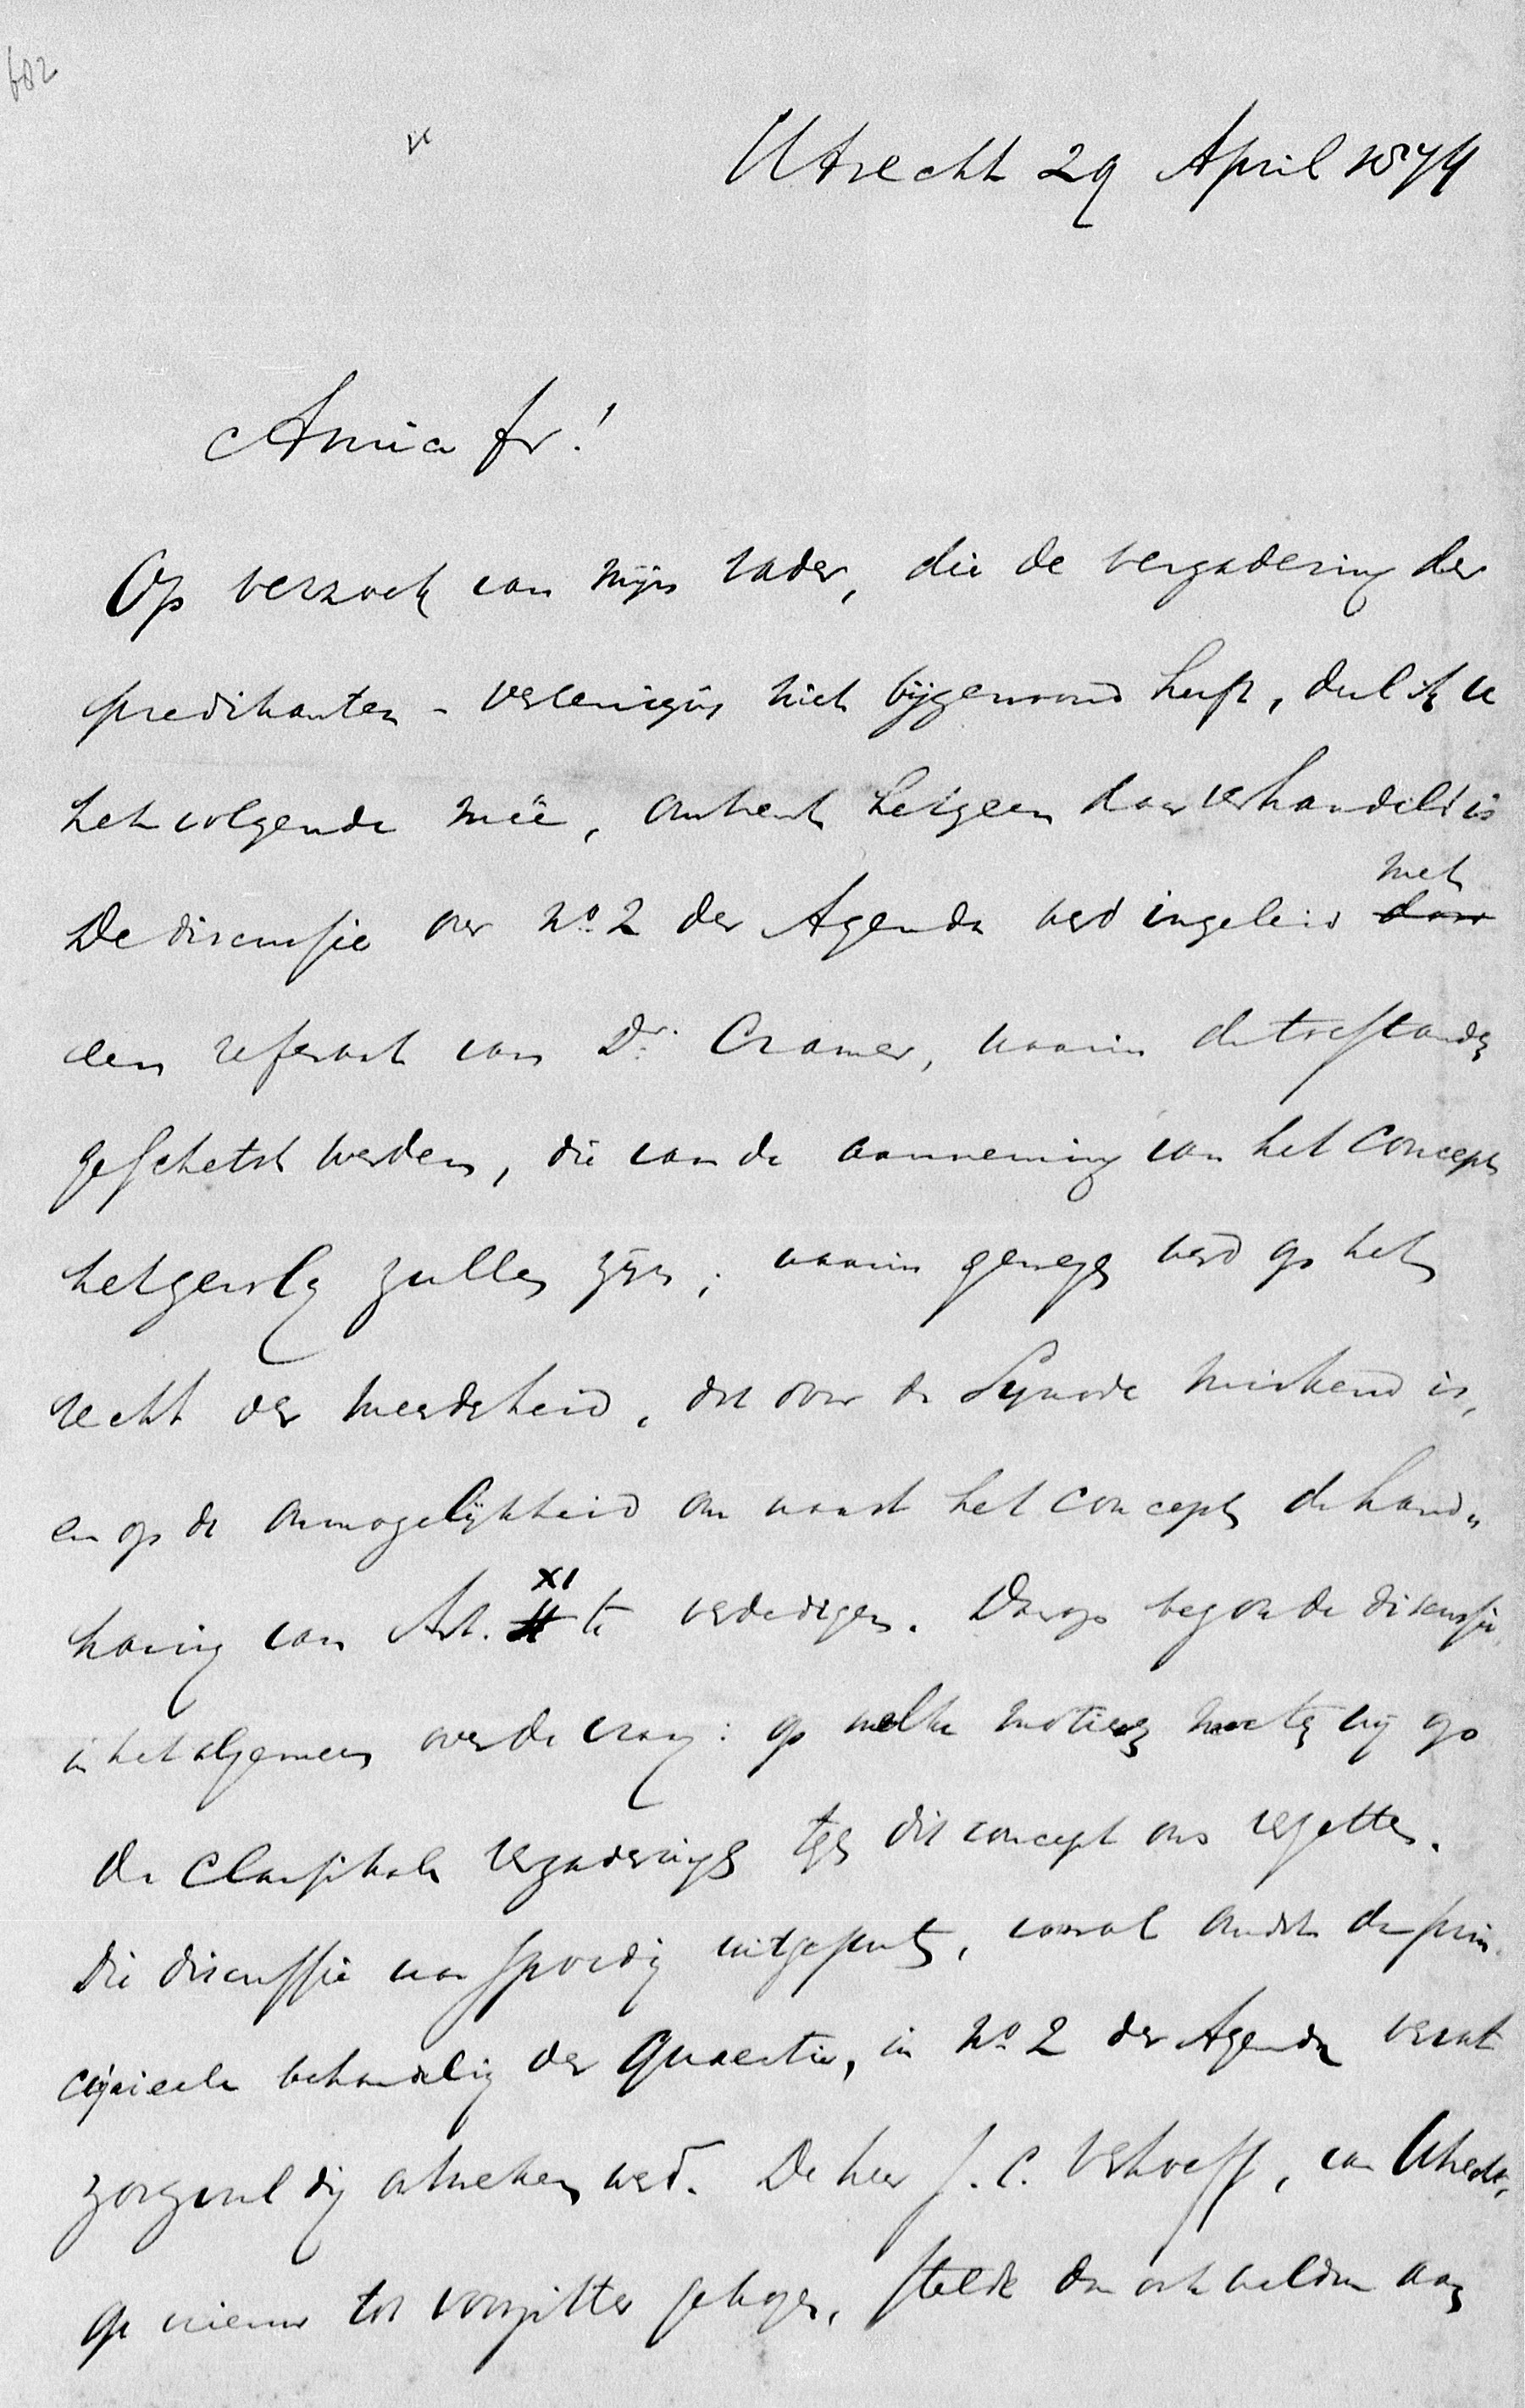 602
Utrecht 29 April 1874
Amice fr!
Op verzoek van mijn vader, die de vergadering der
predikanten-vereeniging niet bijgewoond heeft, deel ik u
het volgende meê, omtrent hetgeen daar verhandeld is
met
De discussie over No. 2 der Agenda werd ingeleid door
een referaat van Dr. Cramer, waarin de toestanden
geschetst werden, die van de aanneming van het concept
het gevolg zullen zijn; waarin gewezen werd op het
recht der meerderheid, dat door de Synode miskend is,
en op de onmogelijkheid om naast het concept de hand-
XI
having van Art. te verdedigen. Daarop begon de discussie
in het algemeen over de vraag: op welke motieven moeten wij op
de Classikale vergaderingen tegen dit concept ons verzetten.
Die discussie was spoedig uitgeput, vooral omdat de prin-
cipieele behandeling der quaestie, in No. 2 der Agenda vervat
zorgvuldig ontweken werd. De heer J. C. Verhoeff, van Utrecht,
op nieuw tot voorzitter gekozen, stelde dan ook weldra aan